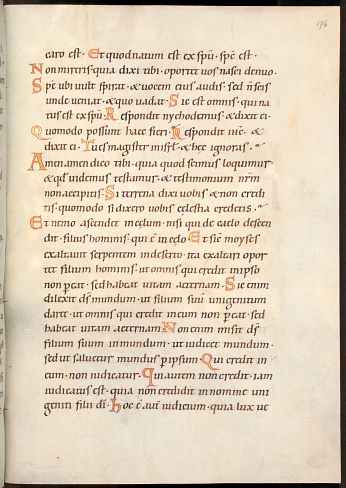 176
caro est · Et quod natum est ex spū · spc̄ est ·
Non mireris · quia dixi tibi · oportet uos nasci denuo ·
Sp̄c ubi uult spirat · & uocem eius audis · sed nescis
unde ueniat · & quo uadat · Sic est omnis · qui na
tus est ex spū · Respondit nychodemus · & dixit ei ·
Quomodo possunt haec fieri · Respondit ihc̄ · &
dixit ei · Tu es magister in isrł · & hęc ignoras ·
Amen amen dico tibi · quia quod scimus loquimur ·
& qđ uidimus testamur · & testimonium nr̄m
non accipitis · Si terrena dixi uobis & non credi
tis · quomodo si dixero uobis cęlestia credetis ·
Et nemo ascendit in cęlum · nisi qui de caelo descen
dit · filius hominis · qui ē in cęlo · Et sic moyses
exaltauit serpentem in deserto · ita exaltari opor
tet filium hominis · ut omnis qui credit in ipso
non peat · sed habeat uitam aeternam · Sic enim
dilexit ds̄ mundum · ut filium suū unigenitum
daret · ut omnis qui credit in eum non peat · sed
habeat uitam aeternam · Non enim misit ds̄
filium suum in mundum · ut iudicet mundum ·
sed ut saluetur mundus p ipsum · Qui credit in
eum · non iudicatur · qui autem non credit · iam
iudicatus est · quia non credidit in nomine uni
geniti filii dī · hoc ē aut̄ iudicium · quia lux ue